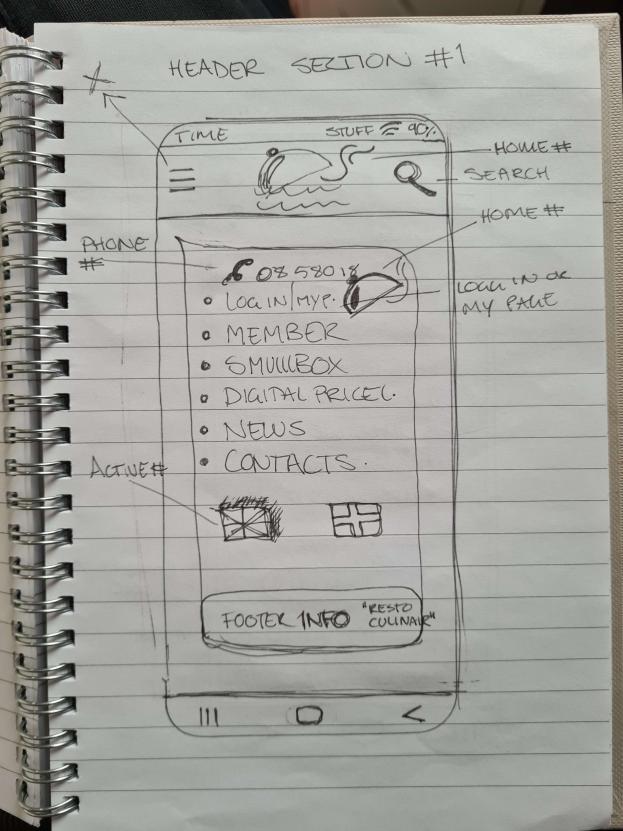 HEADER SECTION #1
TIME STUFF 90%
HOME #
SEARCH
HOME #
PHONE
#
08 58018
LOGIN/MYP.
LOGIN OR
MY PAGE
MEMBER
SMULLBOX
DIGITAL PRICEL.
NEWS
CONTACTS.
ACTIVE#
FOOTER INFO "RESTO
CULINAIR"